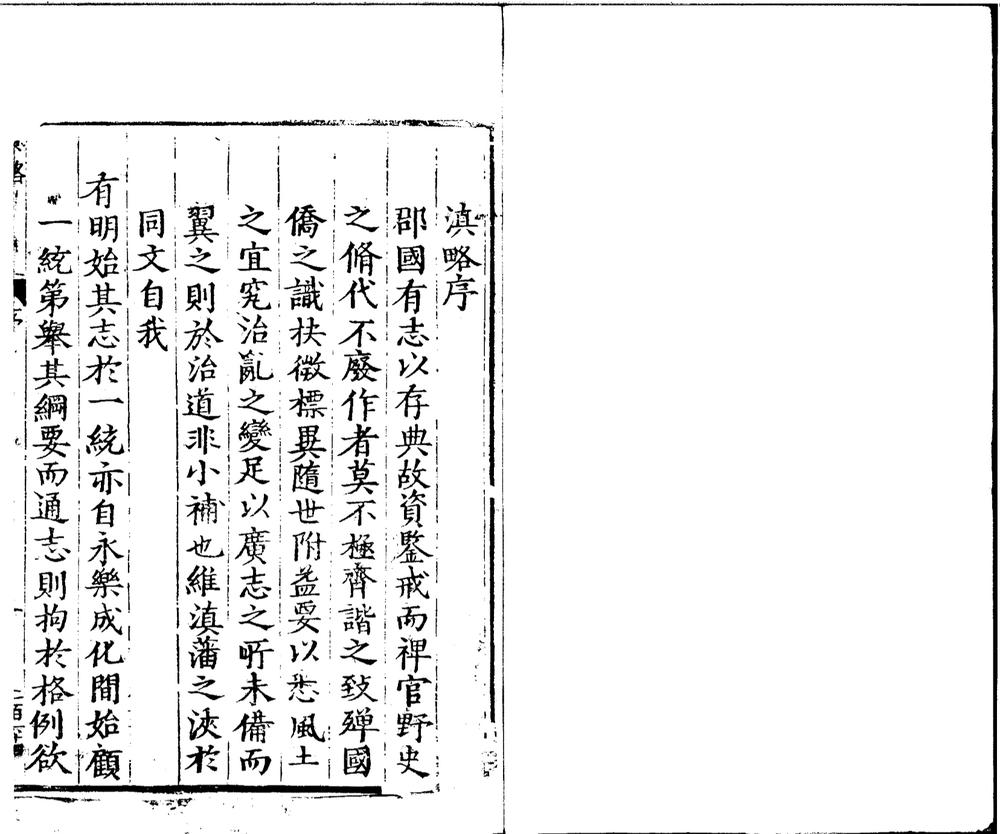 滇略序
郡國有志以存典故資鑒戒而稗官野史
之脩代不廢作者莫不極齊諧之致殫國
僑之識抉微標異隨世附益要以悉風土
之宜究治亂之變足以廣志之所未備而
翼之則於治道非小補也維滇藩之浹於
同文自我
有明始其志於一統亦自永樂成化間始顧
一統第舉其綱要而通志則拘於格例欲
略
序
一